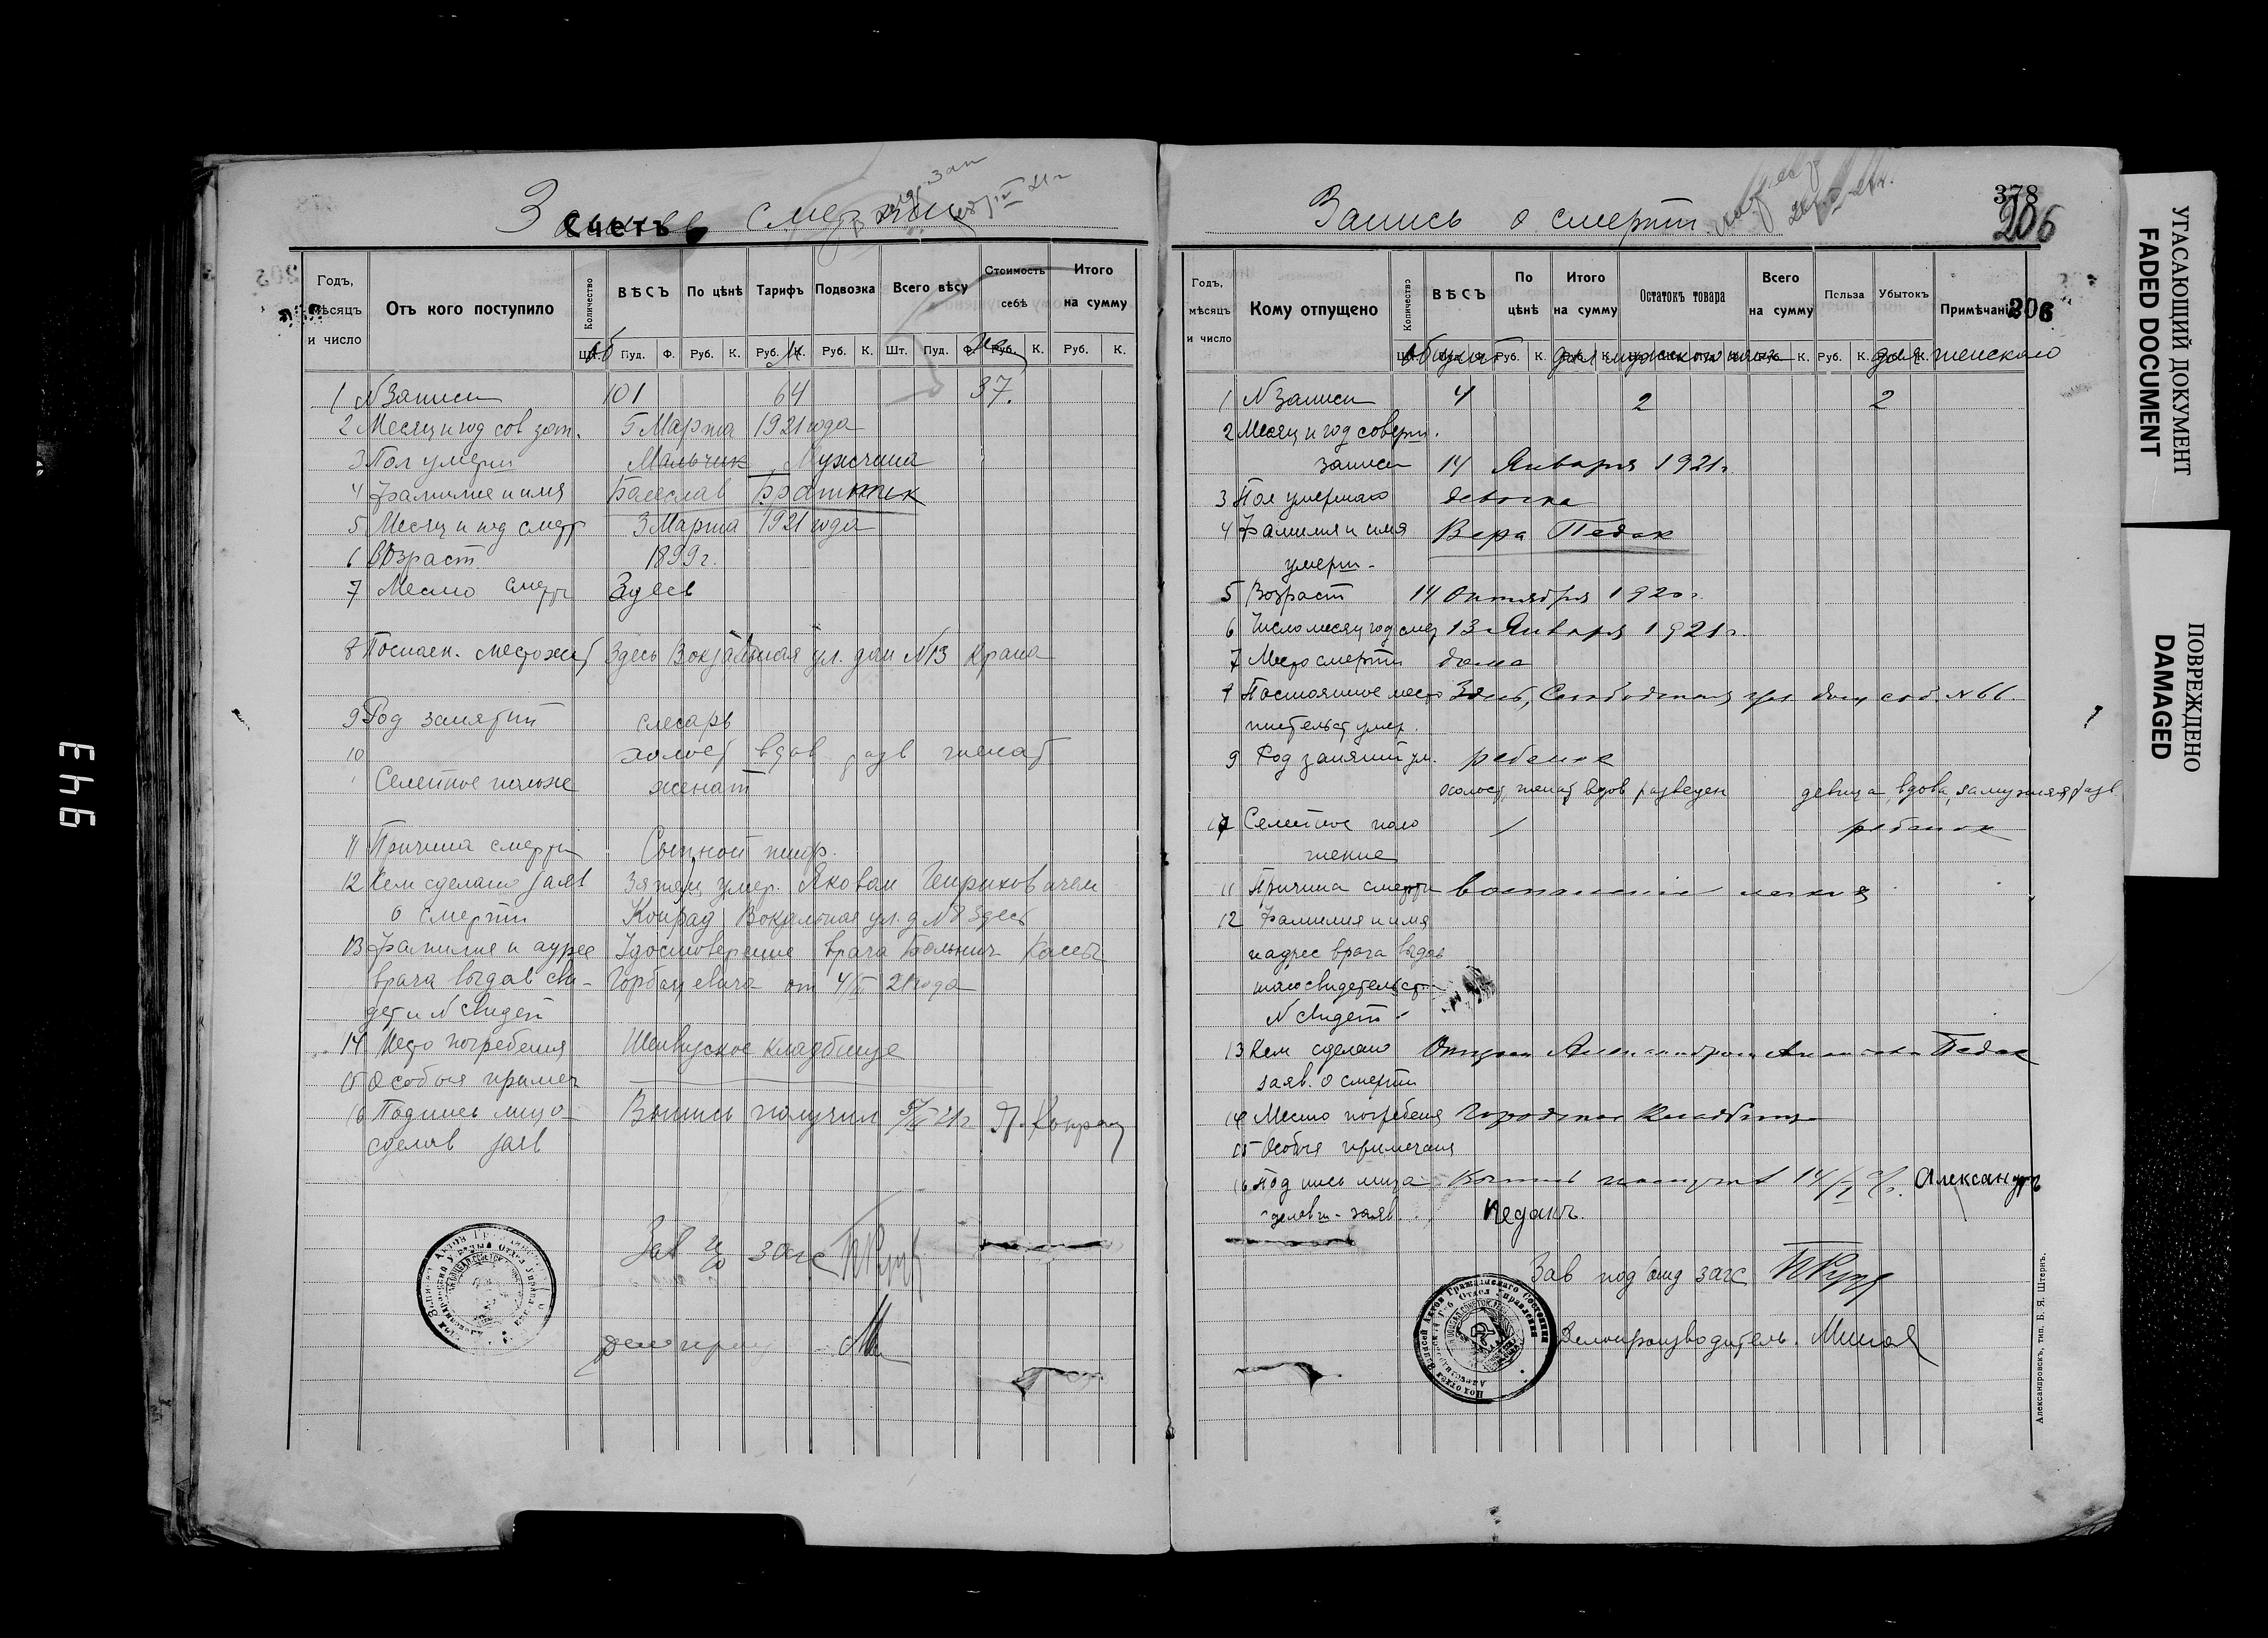 Запись о смерти
Счетъ
Годъ, мѣсяцъ и число
Отъ кого поступило
Количество
ВѢСЪ
По цѣнѣ
Тарифъ
Подвозка
Всего вѣсу
Стоимость себѣ
Итого на сумму
Шт. Пуд. Ф. Руб. К. Руб. К. Руб. К. Шт. Пуд. Ф. Руб. К. Руб. К.
1 N Записи 101 64 37.
2 Месяц и год сов зап. 5 Марта 1921 года
3 Пол умерш Мальчик Мужчина
4 Фамилие и имя Балеслав Братнчик
5 Месяц и год смерт 3 Марта 1921 года
6 Возраст 1899 г.
7 Место смерт Здесь
8 Постаен. местожит Здесь Вокзальная ул. дом N 13 Крана
9 Род занятий слесарь
10 холост вдов разв женат
Семейное положе женат
11 Причина смерти Сыпной тиф.
12 Кем сделано заяв Зятем умер. Яковам Генриховичем
о смерти Конрад Вокзальная ул. д N 8 Здесь
13 Фамилие и адрес Удостоверение врача Больнич Кассы
врача выдав сви- Горбацевича от 4/III 21 года
дет и N свидет
14 Место погребения кладбище
15 Особыя примеч
16 Подпись лица Выпись получил 5/III 21 г Я. Конрад
сделав заяв
Зав загс
378
206
Запись о смерти
Годъ, мѣсяцъ и число
Кому отпущено
Количество
ВѢСЪ
По цѣнѣ
Итого на сумму
Остатокъ товара
Всего на сумму
Польза
Убытокъ
Примѣчаніе
206
Общий для мужского пола для женскаго
1 N Записи 4 2 2
2 Месяц и год соверш.
записи 14 Января 1921 г.
3 Пол умершаго девочка
4 Фамилия и имя Вера Педак
умерш-
5 Возраст 14 Октября 1920 г.
6 Число месяц год смер 13 Января 1921 г.
7 Место смерти дома
Постоянное место Здесь, Слободская ул. дом соб. N 61.
жительст умер.
9 Род занятий ум. ребенок
холост, женат, вдов разведен девица, вдова, замужняя, разв.
Семейное поло ребенок
жение
11 Причина смерти воспаление легких
12 Фамилия и имя
и адрес врача выдав
шаго свидетельст-
N свидет-
13 Кем сделано Отцом Александром Педак
заяв. о смерти
14 Место погребения Городское кладбище
15 Особыя примечания
16 Подпись лица Выпись получил 14/I 21 г. Александръ
сделавш- заяв. Педакъ.
Зав подотд загс
Делопроизводитель.
Александровскъ, тип. Б. Я. Штернъ.
УГАСАЮЩИЙ ДОКУМЕНТ
FADED DOCUMENT
ПОВРЕЖДЕНО
DAMAGED
943